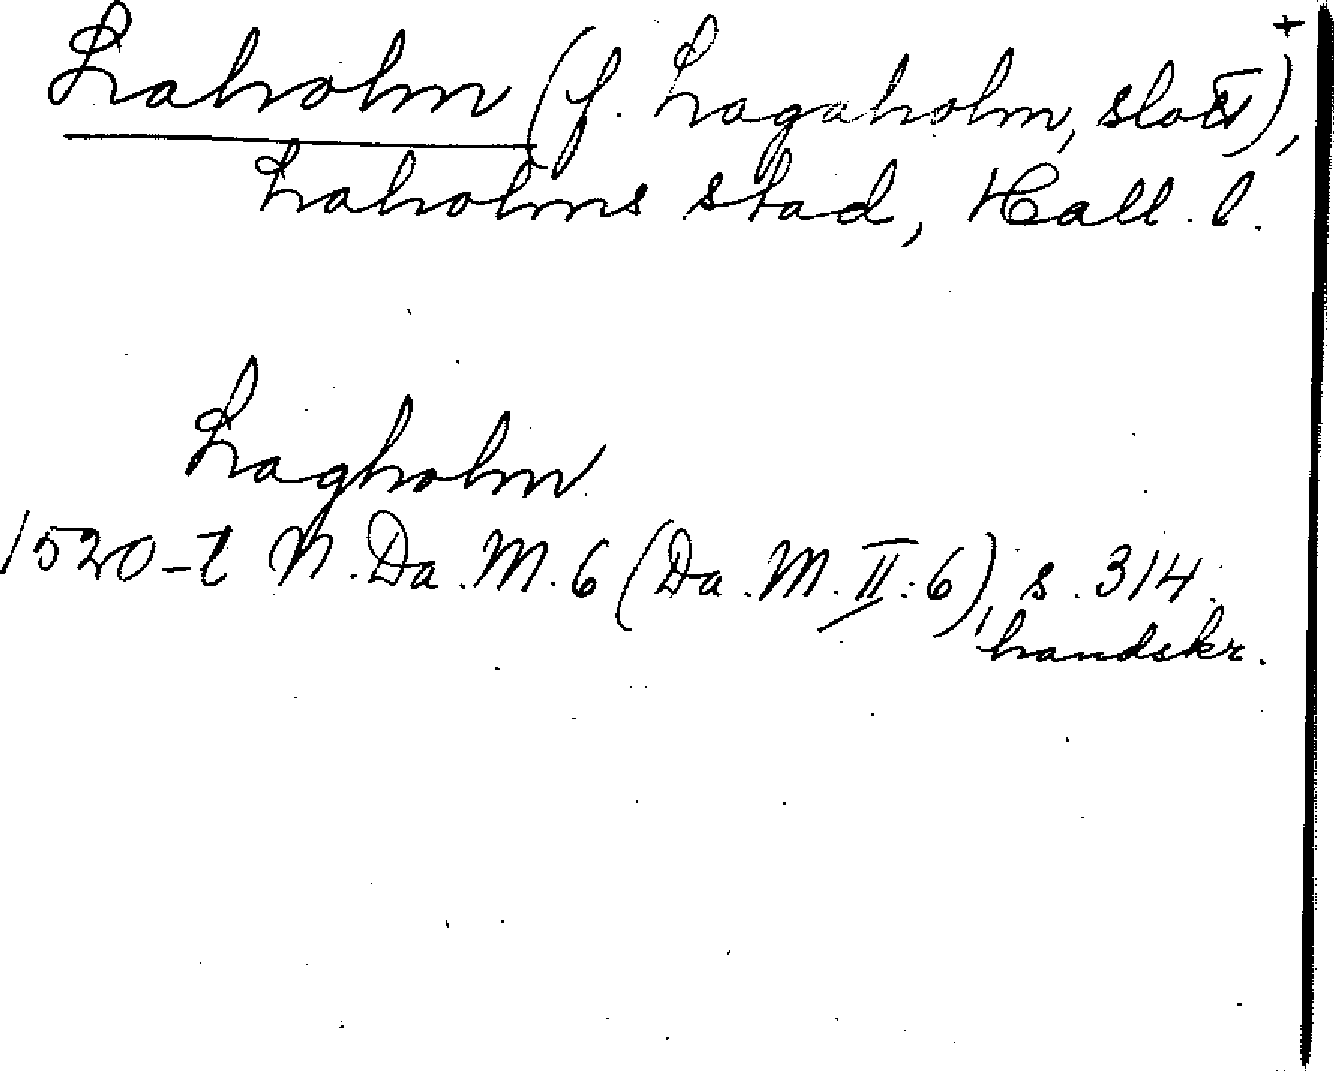 Laholm (f. Lagaholm, slott)+,
Laholms stad, Hall. l.
Lagholm
1520-t N. Da. M. 6 (Da. M. II: 6), s. 314.
handskr.